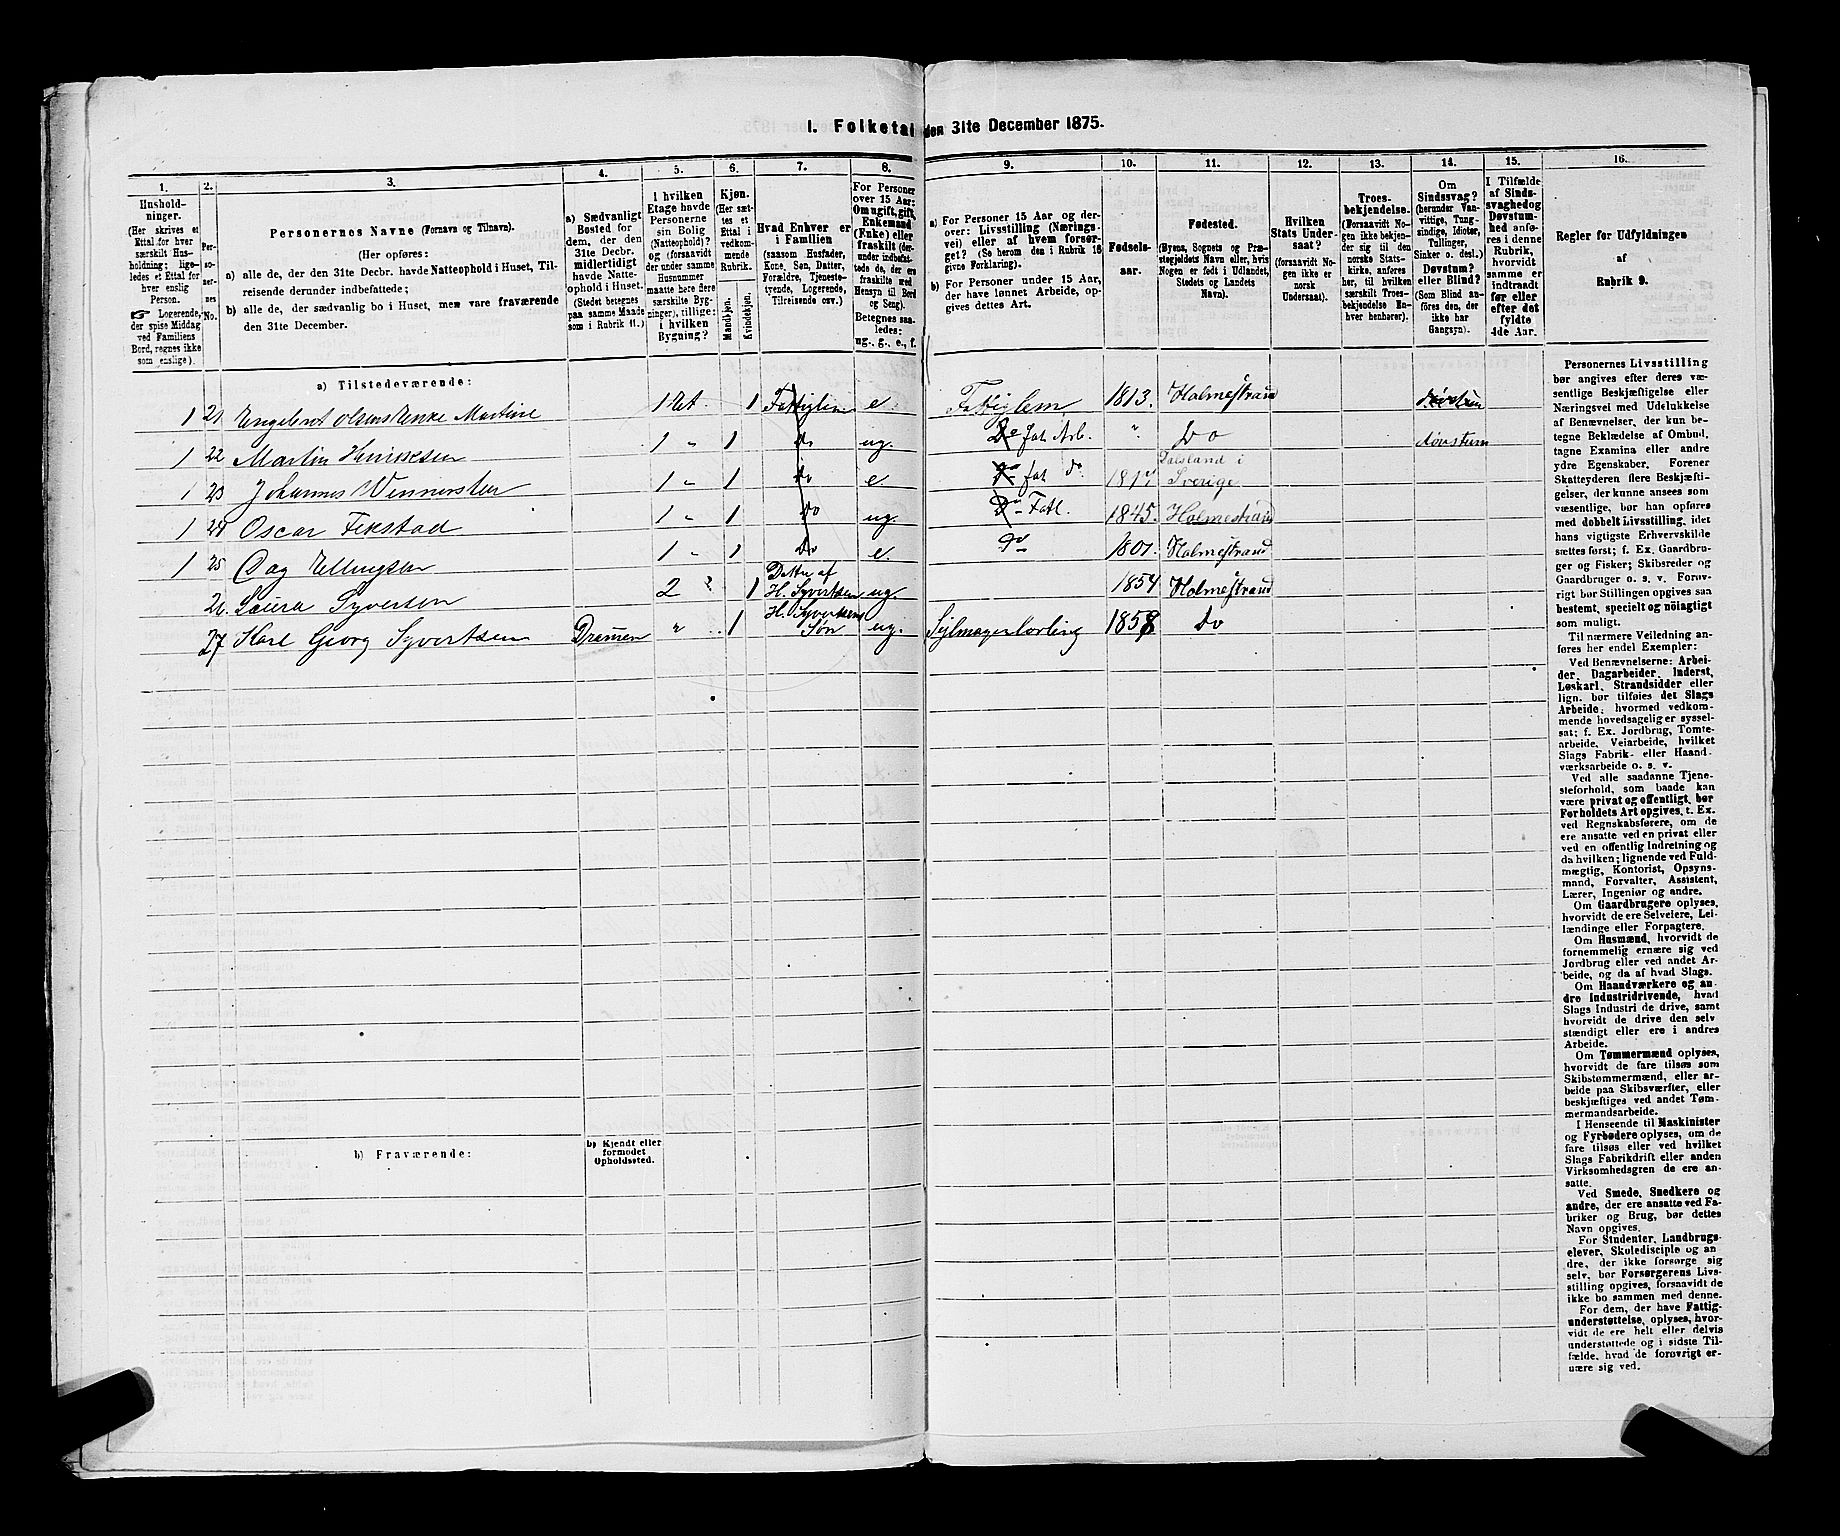 1. Folketal den 31te December 1875.
1. 2. 3. 4. 5. 6. 7. 8. 9. 10. 11. 12. 13. 14. 15. 16.
Hushold-
ninger.
(Her skrives et
Ettal for hver
særskilt Hus-
holdning; lige-
ledes et Ettal for
hver enslig
Person.
☞ Logerende,
der spise Middag
ved Familiens
Bord, regnes ikke
som enslige).
Per-
so-
ner-
nes
No.
Personernes Navne (Fornavn og Tilnavn).
(Her opføres:
a) alle de, der den 31te Decbr. havde Natteophold i Huset, Til-
reisende derunder indbefattede;
b) alle de, der sædvanlig bo i Huset, men vare fraværende
den 31te December.
a) Sædvanligt
Bosted for
dem, der den
31te Decbr.
midlertidigt
havde Natte-
ophold i Huset.
(Stedet betegnes
paa samme Maade
som i Rubrik 11.)
I hvilken
Etage havde
Personerne
sin Bolig
(Natteophold)?
og (forsaavidt
der under samme
Husnummer
matte høre flere
særskilte Byg-
ninger), tillige:
i hvilken
Bygning?
Kjøn.
(Her sæt-
tes et
Ettal i
vedkom-
mende
Rubrik.
Mandkjøn.
Kvindekjøn.
Hvad Enhver er
i Familien
(saasom Husfader,
Kone, Søn, Datter,
Forældre, Tjeneste-
tyende, Logerende,
Tilreisende osv.)
For Personer
over 15 Aar:
Om ugift, gift,
Enkemand
(Enke) eller
fraskilt (der-
under indbefat-
tede de, der ere
fraskilte med
Hensyn til Bord
og Seng).
Betegnes saa-
ledes:
ug., g., e., f.
a) For Personer 15 Aar og der-
over: Livsstilling (Nærings-
vei) eller af hvem forsør-
get? (Se herom den i Rubrik 16
givne Forklaring).
b) For Personer under 15 Aar,
der have lønnet Arbeide, op-
gives dettes Art.
Fødsels-
aar.
Fødested.
(Byens, Sognets og Præ-
stegjeldets Navn eller, hvis
Nogen er født i Udlandet,
Stedets og Landets
Navn).
Hvilken
Stats Under-
saat?
(forsaavidt No-
gen ikke er
norsk
Undersaat).
Troes-
bekjendelse.
(Forsaavidt No-
gen ikke bekjen-
der sig til den
norske Stats-
kirke, anføres
her, til hvilken
særskilt Troes-
bekjendelse En-
hver henhører).
Om
Sindssvag?
(herunder Van-
vittige, Tung-
sindige, Idioter,
Tullinger,
Sinker o. desl.)
Døvstum?
eller Blind?
(Som Blind an-
føres den, der
ikke har
Gangsyn).
I Tilfælde
af Sinds-
svaghed og
Døvstum-
hed anfø-
res i denne
Rubrik,
hvorvidt
samme er
indtraadt
før eller
efter det
fyldte
4de Aar.
Regler for Udfyldningen
af
Rubrik 9.
a) Tilstedeværende:
1 21 Engebret Olsens Enke Martine 1 Et. 1 Fattiglem e. Fattiglem 1813. Holmestrand døvstum
1 22 Martin Henriksen 1 " 1 do ug. Do fat. Arb. " Do døvstum
1 23 Johannes Wennersten 1 " 1 do e. do fat do 1817 Dalsland i Sverige
1 24 Oscar Fekstad 1 " 1 do ug. Do Fatl. 1845. Holmestrand
1 25 Dag Ellingsen 1 " 1 do e. do 1801. Holmestrand
26. Laura Syversen 2 " 1 Datter af H. Syvertsen ug. 1854 Holmestrand
27 Karl Georg Syvertsen Dramen " 1 H. Syvertsens Søn ug. Sejlmagerlærling 1858 Do
b) Fraværende:
b) Kjendt eller
formodet
Opholdssted.
Personernes Livsstilling
bør angives efter deres væ-
sentlige Beskjæftigelse eller
Næringsvei med Udelukkelse
af Benævnelser, der kun be-
tegne Beklædelse af Ombud,
tagne Examina eller andre
ydre Egenskaber. Forener
Skatteyderen flere Beskjæfti-
gelser, der kunne ansees som
væsentlige, bør han opføres
med dobbelt Livsstilling, idet
hans vigtigste Erhvervskilde
sættes først; f. Ex. Gaardbru-
ger og Fisker; Skibsreder og
Gaardbruger o. s. v. Forøv-
rigt bør Stillingen opgives saa
bestemt, specielt og nøiagtigt
som muligt.
Til nærmere Veiledning an-
føres her endel Exempler:
Ved Benævnelserne: Arbei-
der, Dagarbeider, Inderst,
Løskarl, Strandsidder eller
lign. bør tilføies det Slags
Arbeide, hvormed vedkom-
mende hovedsagelig er syssel-
sat; f. Ex. Jordbrug, Tomte-
arbeide, Veiarbeide, hvilket
Slags Fabrik- eller Haand-
værksarbeide o. s. v.
Ved alle saadanne Tjene-
steforhold, som baade kan
være privat og offentligt, bør
Forholdets Art opgives, t. Ex.
ved Regnskabsførere, om de
ere ansatte ved en privat eller
ved en offentlig Indretning og
da hvilken; lignende ved Fuld-
mægtig, Kontorist, Opsyns-
mand, Forvalter, Assistent,
Lærer, Ingeniør og andre.
Om Gaardbrugere oplyses,
hvorvidt de ere Selveiere, Lei-
lændinge eller Forpagtere.
Om Husmænd, hvorvidt de
fornemmelig ernære sig ved
Jordbrug eller ved andet Ar-
beide, og da af hvad Slags.
Om Haandværkere og an-
dre Industridrivende, hvad
Slags Industri de drive, samt
hvorvidt de drive den selv
stændigt eller ere i andres
Arbeide.
Om Tømmermænd oplyses,
hvorvidt de fare tilsøs som
Skibstømmermænd, eller ar-
beide paa Skibsværfter, eller
beskjæftiges ved andet Tøm-
mermandsarbeide.
I Henseende til Maskinister
og Fyrbødere oplyses, om de
fare tilsøs eller ved hvilket
Slags Fabrikdrift eller anden
Virksomhedsgren de ere an-
satte.
Ved Smede, Snedkere og
andre, der ere ansatte ved Fa-
briker og Brug, bør dettes
Navn opgives.
For Studenter, Landbrugs-
elever, Skoledisciple og an-
dre, der ikke forsørge sig
selv, bør Forsørgerens Livs-
stilling opgives, forsaavidt de
ikke bo sammen med denne.
For dem, der have Fattig-
understøttelse, oplyses, hvor-
vidt de ere helt eller delvis
understøttede og i sidste Til-
fælde, hvad de forøvrigt er-
nære sig ved.